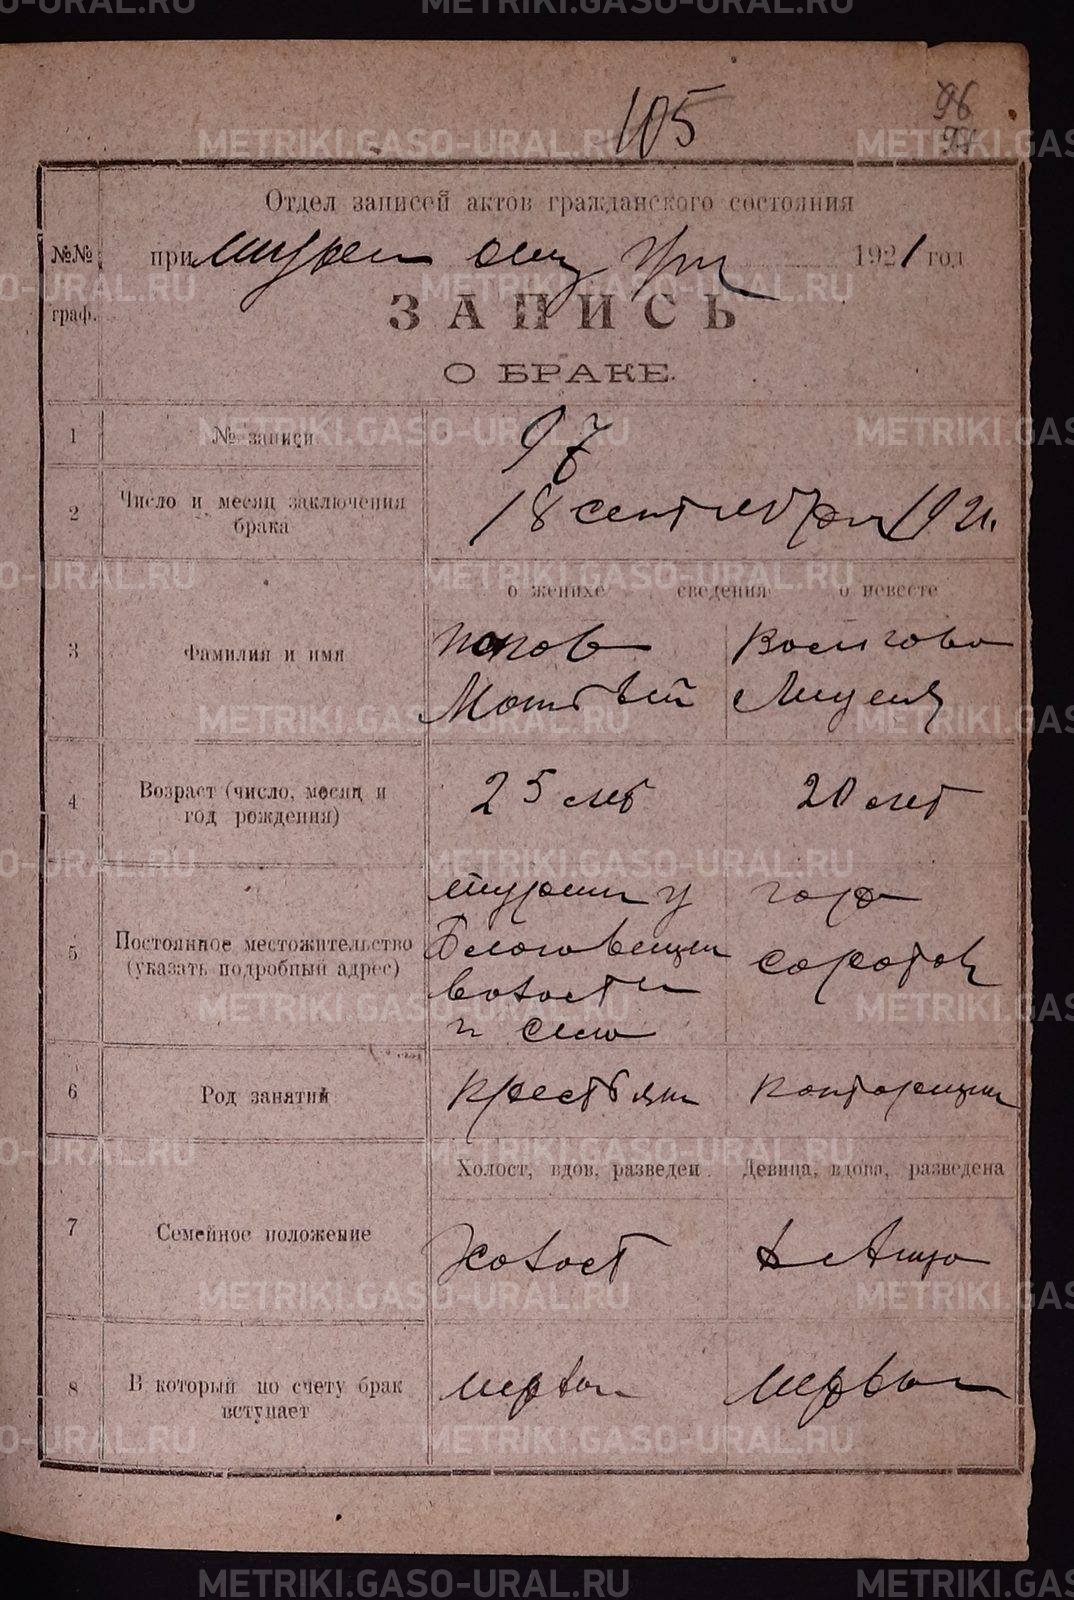 METRIKI.GASO-URAL.RU
96
105
Отдел записей актов гражданского состояния
№№ граф.
при 1921 год
ЗАПИСЬ
О БРАКЕ.
1 № записи 97
2 Число и месяц заключения брака 18 сентября 1921.
о женихе сведения о невесте
3 Фамилия и имя
Попов
Матвей
4 Возраст (число, месяц и год рождения) 25 лет 20 лет
5 Постоянное местожительство (указать подробный адрес)
Туринск у гор
Благовещен Саратов
волости
и село
6 Род занятий Крестьян Конторщиц
Холост, вдов, разведен. Девица, вдова, разведена
7 Семейное положение Холост девица
8 В который по счету брак вступает первый первый